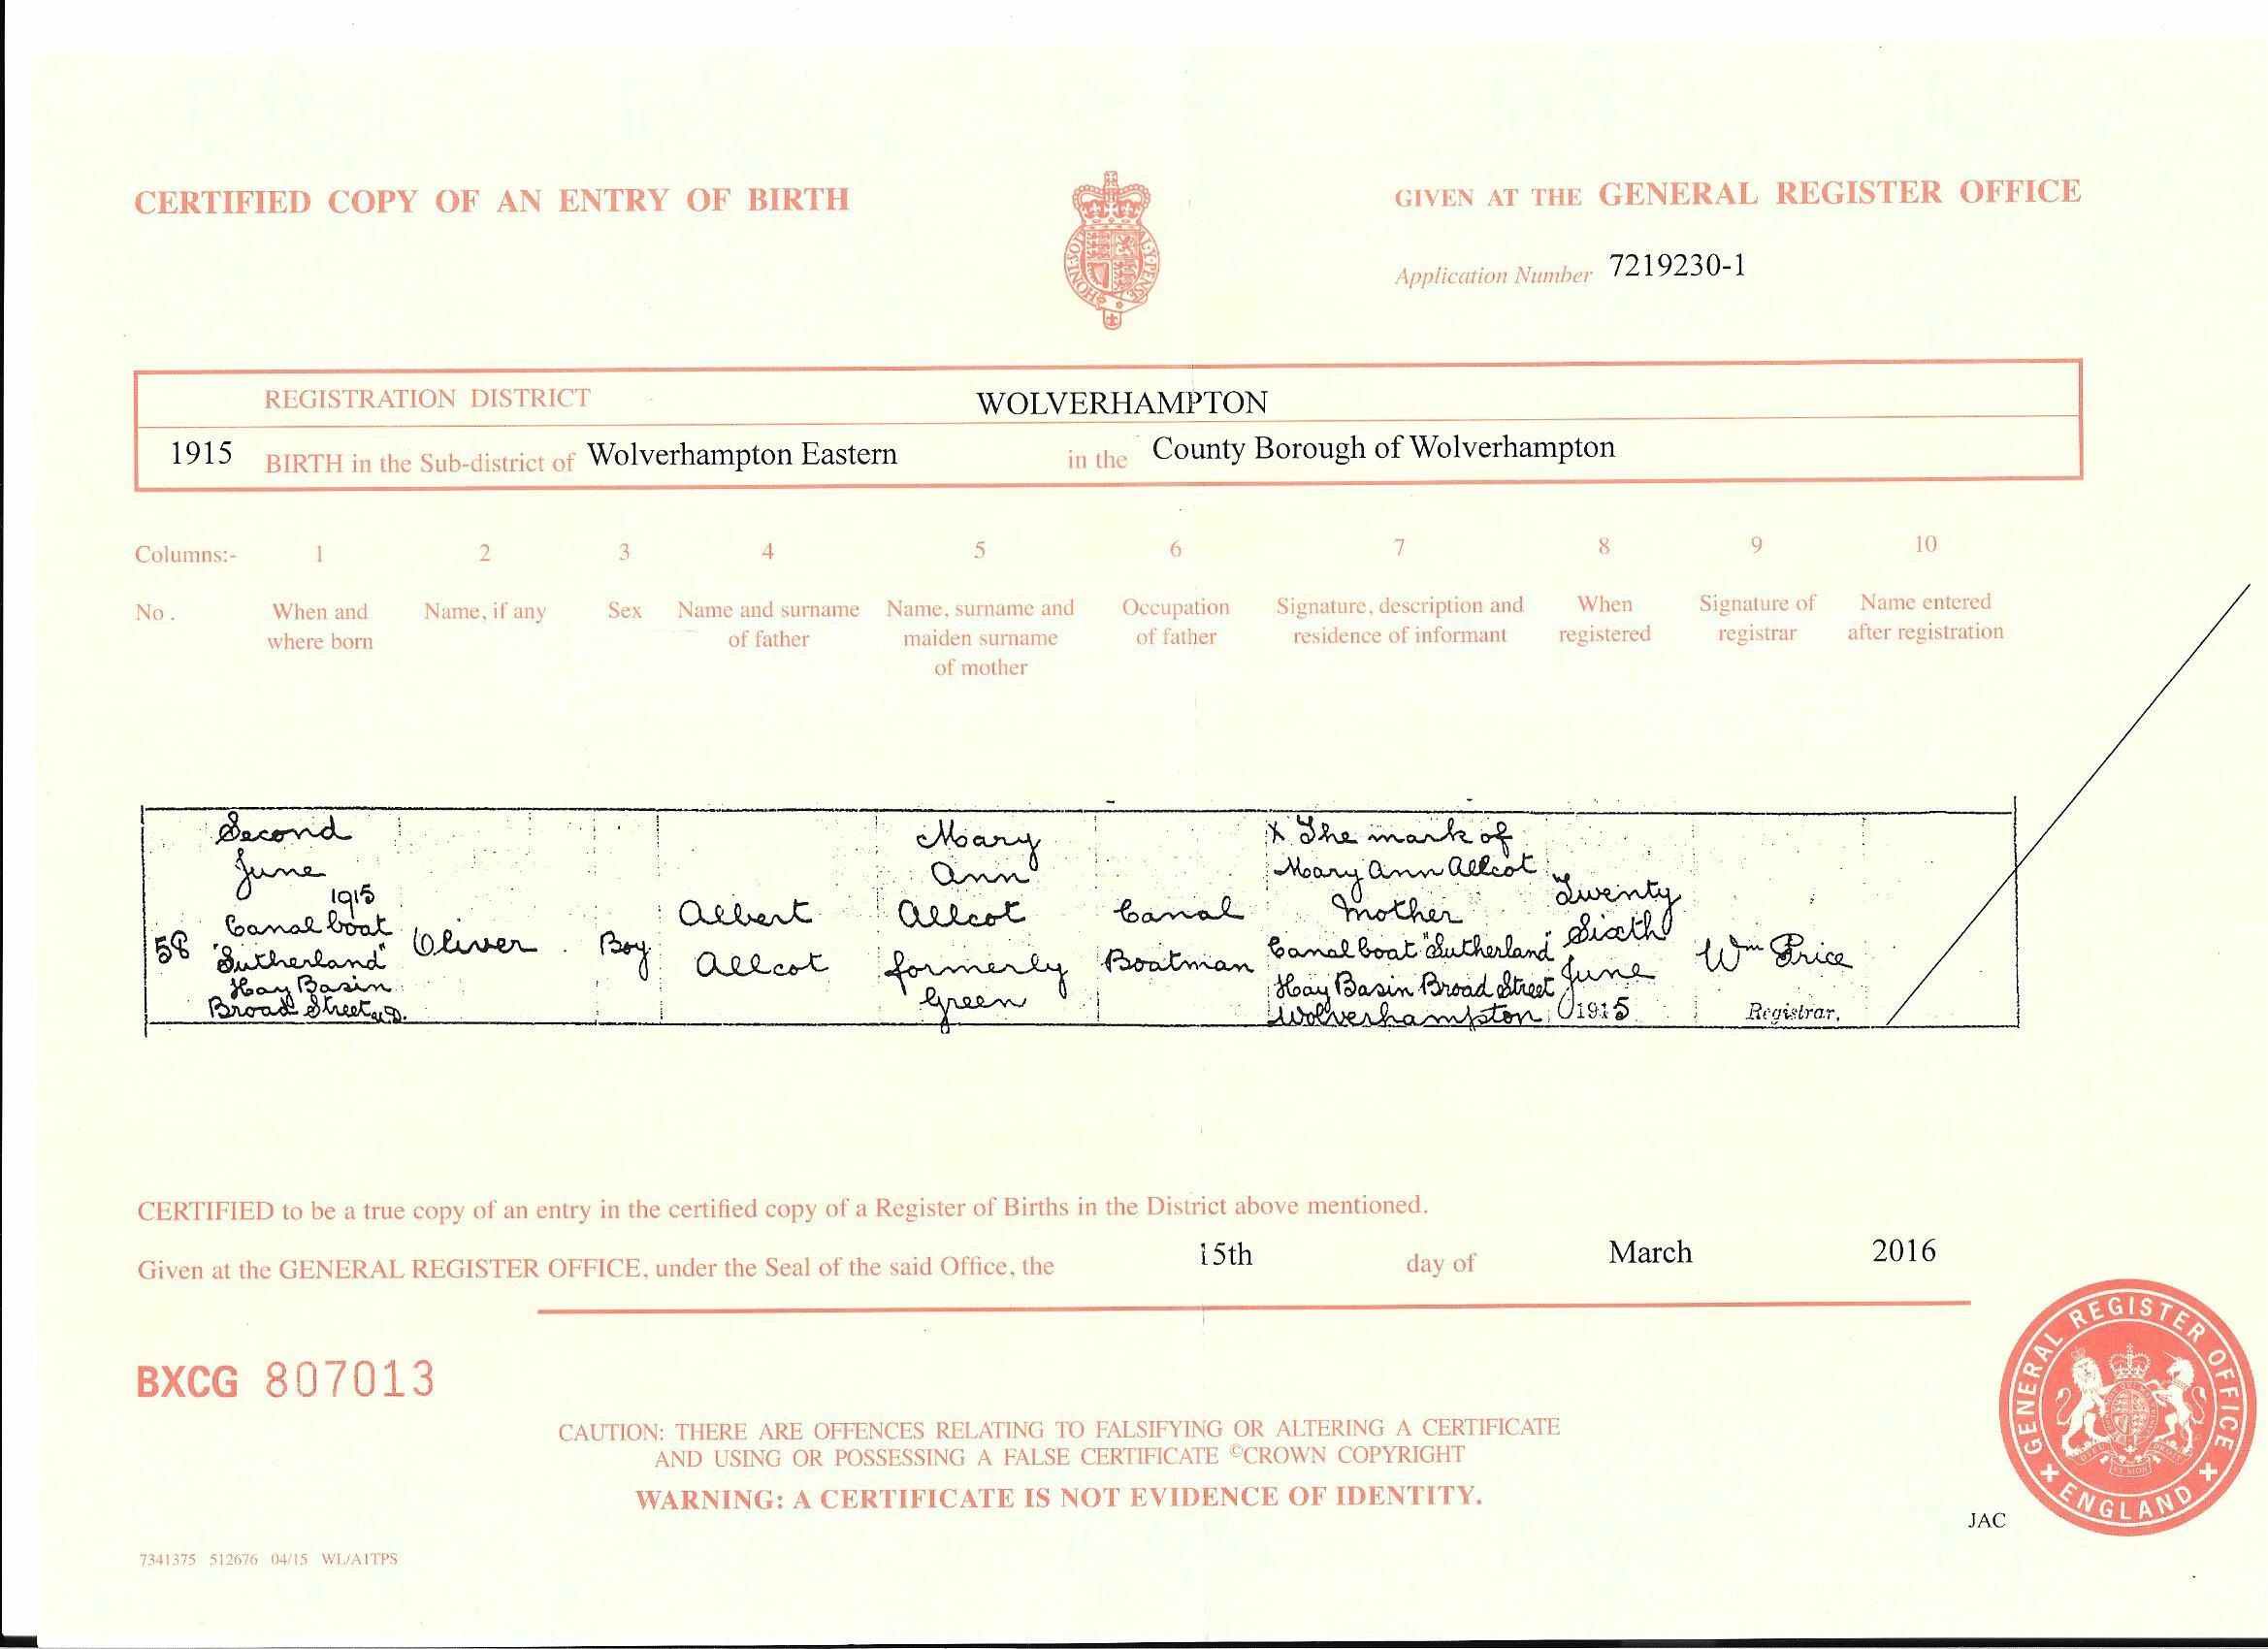 CERTIFIED COPY OF AN ENTRY OF BIRTH
GIVEN AT THE GENERAL REGISTER OFFICE
HONI·SOIT
Y·PENSE
Application Number 7219230-1
REGISTRATION DISTRICT WOLVERHAMPTON
1915 BIRTH in the Sub-district of Wolverhampton Eastern in the County Borough of Wolverhampton
Columns:- 1 2 3 4 5 6 7 8 9 10
No. When and where born
Name, if any
Sex
Name and surname of father
Name, surname and maiden surname of mother
Occupation of father
Signature, description and residence of informant
When registered
Signature of registrar
Name entered after registration
58
Second
June
1915
Canal boat
"Sutherland"
Hay Basin
Broad Street
Oliver
Boy
Albert
Allcot
Mary
Ann
Allcot
formerly
Green
Canal
Boatman
X The mark of
Mary Ann Allcot
Mother
Canal boat "Sutherland"
Hay Basin Broad Street
Wolverhampton
Twenty
Sixth
June
1915
Wm Price
Registrar.
CERTIFIED to be a true copy of an entry in the certified copy of a Register of Births in the District above mentioned.
Given at the GENERAL REGISTER OFFICE, under the Seal of the said Office, the 15th day of March 2016
BXCG 807013
CAUTION: THERE ARE OFFENCES RELATING TO FALSIFYING OR ALTERING A CERTIFICATE
AND USING OR POSSESSING A FALSE CERTIFICATE ©CROWN COPYRIGHT
WARNING: A CERTIFICATE IS NOT EVIDENCE OF IDENTITY.
GENERAL REGISTER OFFICE
ENGLAND
JAC
7341375 512676 04/15 WL/A1TPS